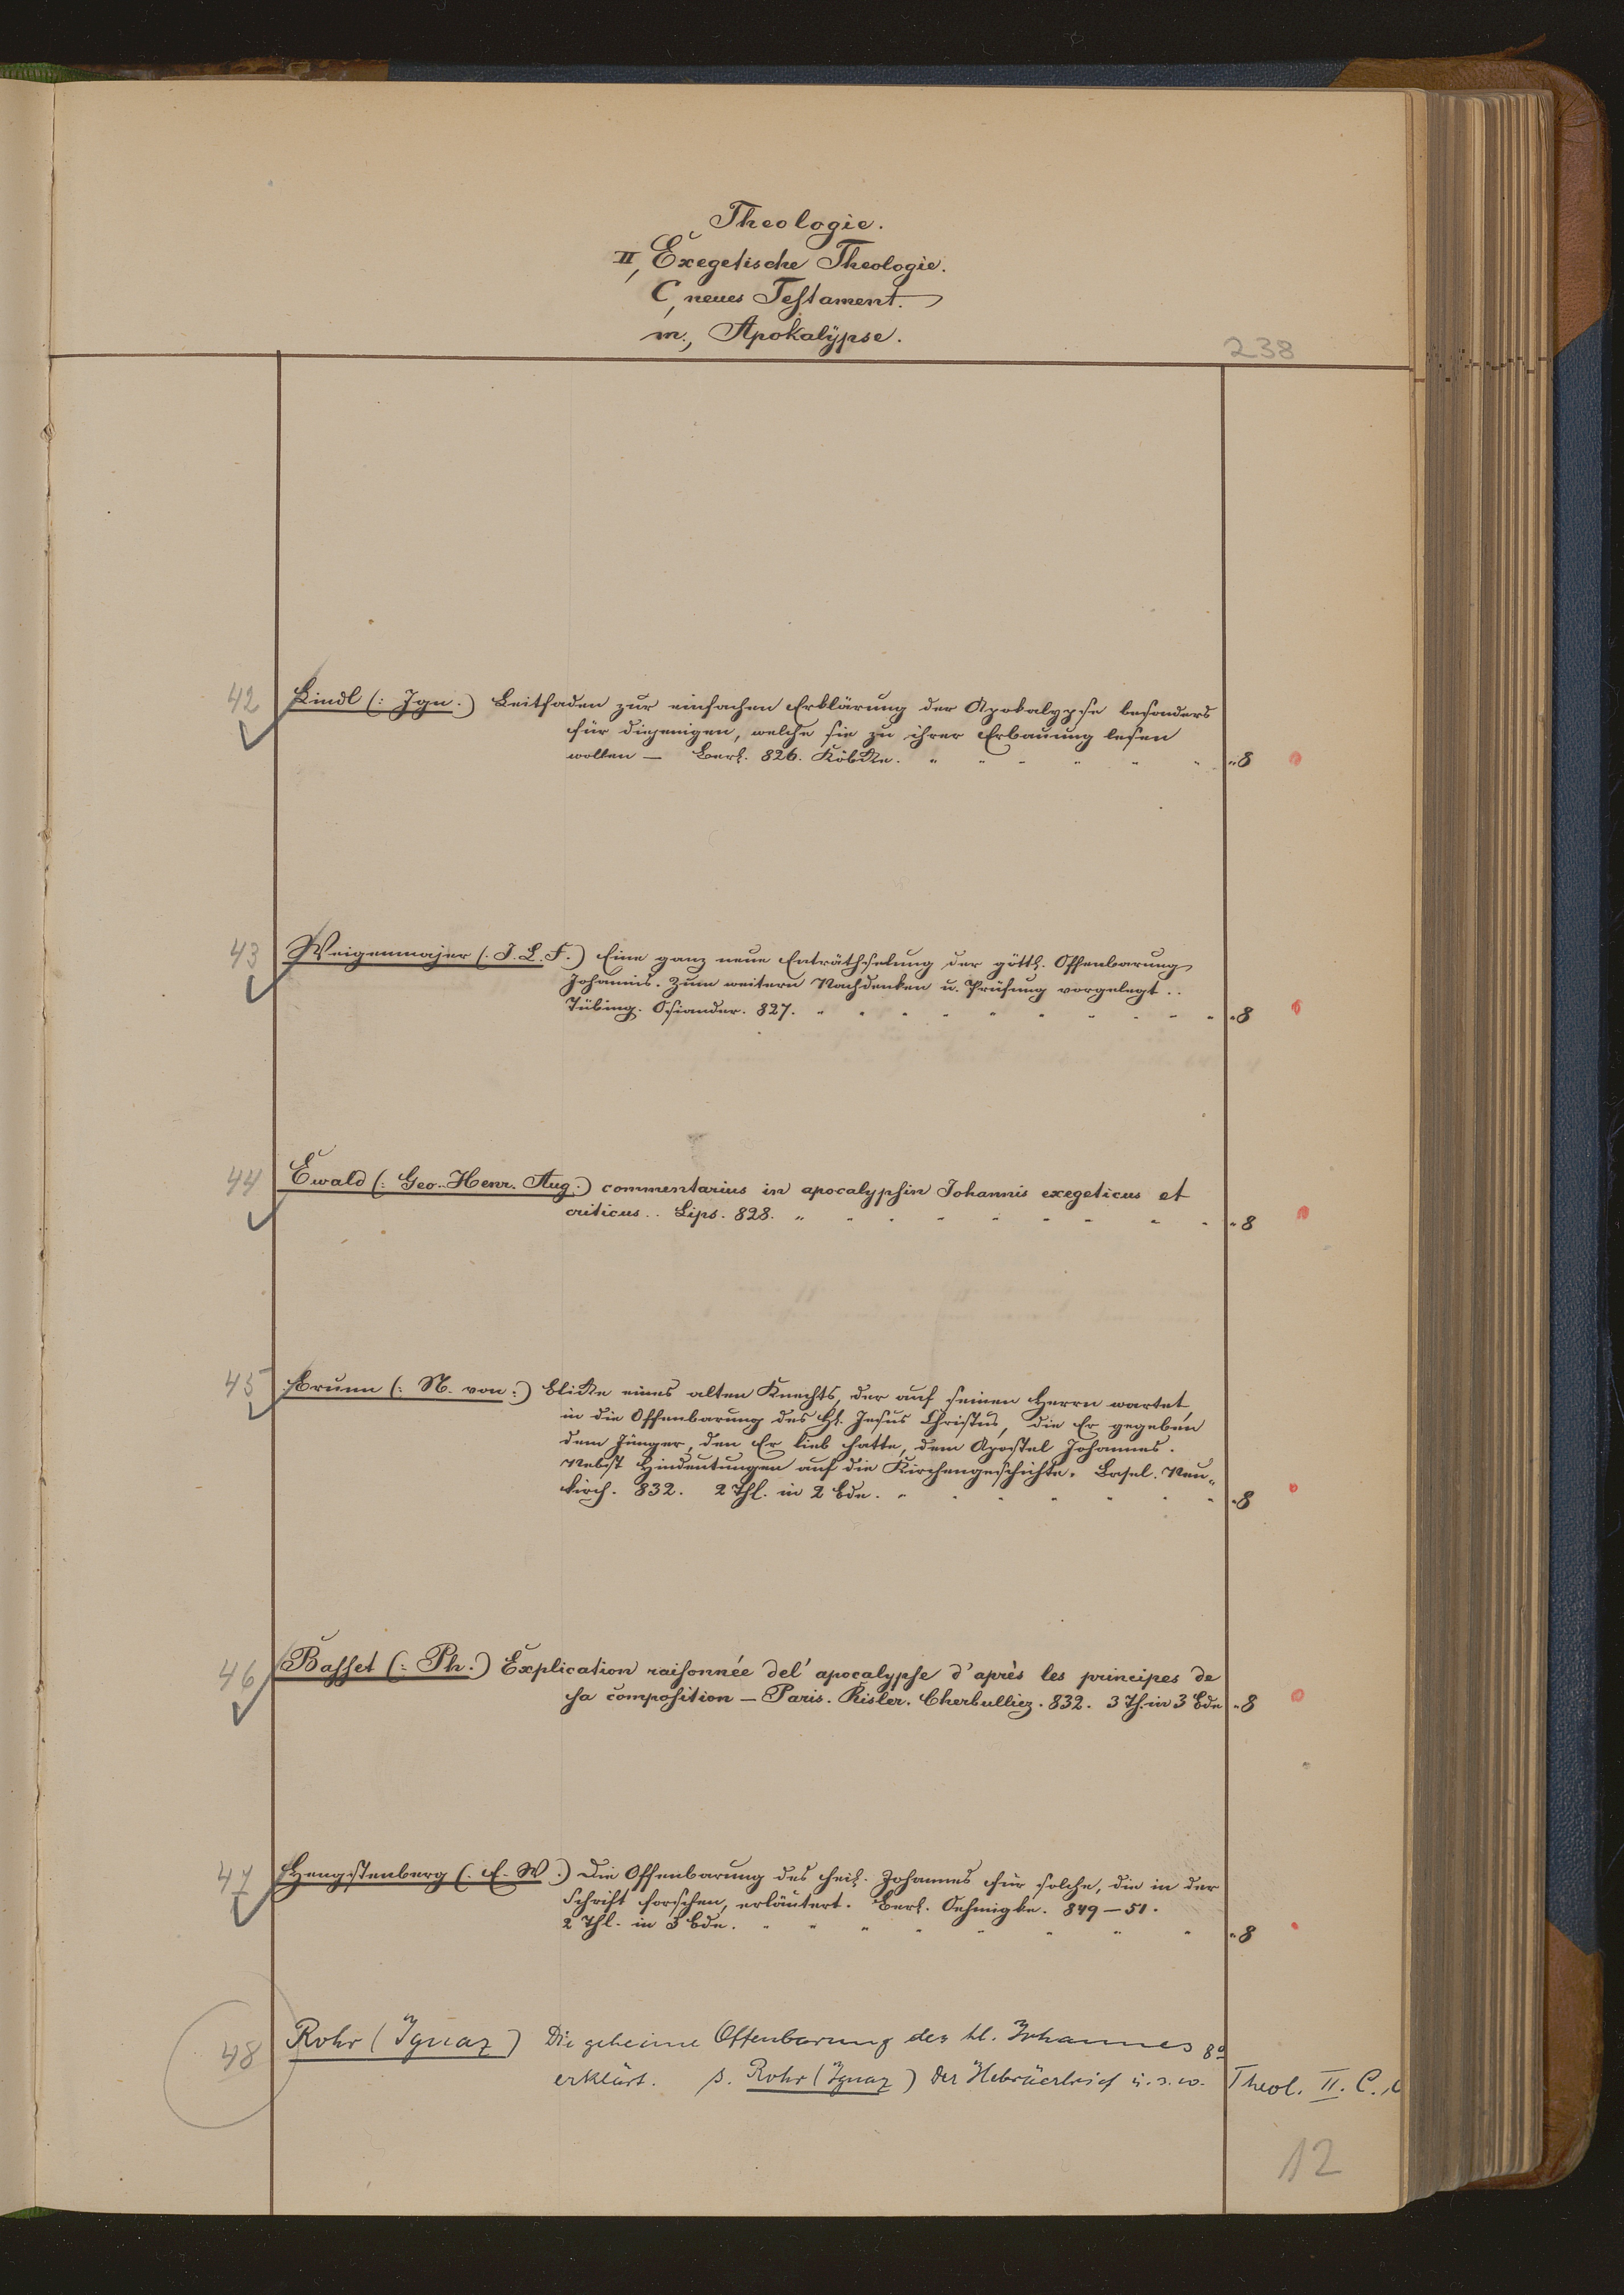 Theologie.
II, Exegetische Theologie.
C, neues Testament.
m., Apokalÿpse.
238
42 Lindl (: Ign.) Leitfaden zur einfachen Erklärung der Apokalypse besonders
für diejenigen, welche sie zu ihrer Erbauung lesen
wollen — Berl. 826. Köbke. " " " " " " "8
43 Weigenmajer (: J. L. F.) Eine ganz neue Enträthselung der göttl. Offenbarung
Johannis. Zum weitern Nachdenken u. Prüfung vorgelegt ..
Tübing. Osiander. 827. " " " " " " " " " "8
44 Ewald (: Geo. Henr. Aug.) commentarius in apocalypsin Johannis exegeticus et
criticus .. Lips. 828. " " " " " " " " " "8
45 Brunn (: N. von :) Blicke eines alten Knechts, der auf seinen Herrn wartet,
in die Offenbarung des H. Jesus Christus, die Er gegeben
dem Jünger, den Er lieb hatte, dem Apostel Johannes.
Nebst Hindeutungen auf die Kirchengeschichte. Basel. Neu-
kirch. 832. 2 Thl. in 2 Bde. " " " " " " " "8
46 Basset (: Ph.) Explication raisonnée del' apocalypse d'après les principes de
sa composition — Paris. Risler. Cherbulliez. 832. 3 Th. in 3 Bde "8
47 Hengstenberg (: E. W.) Die Offenbarung des heil. Johannes für solche, die in der
Schrift forschen, erläutert. Berl. Oehmigke. 849–51.
2 Thl. in 3 Bde. " " " " " " " " "8
48 Rohr (Ignaz) Die geheime Offenbarung des hl. Johannes 8o
erklärt. s. Rohr (Ignaz) Der Hebräerbrief u. s. w. Theol. II. C.
12